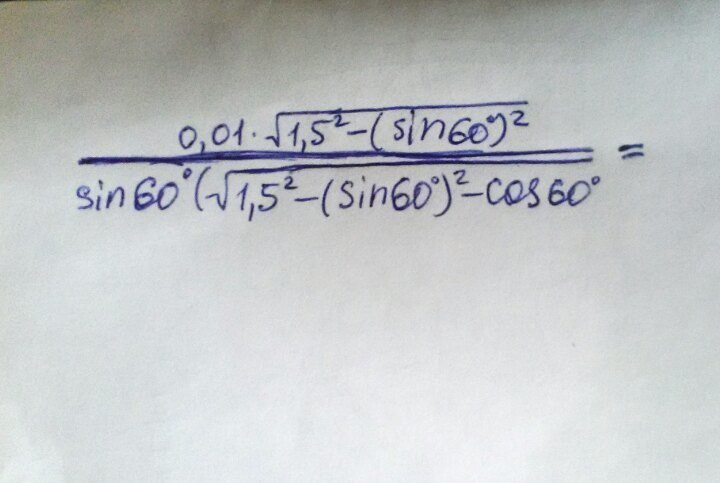 0,01·√1,5²-(sin60°)²
sin60°(√1,5²-(sin60°)²-cos60° =